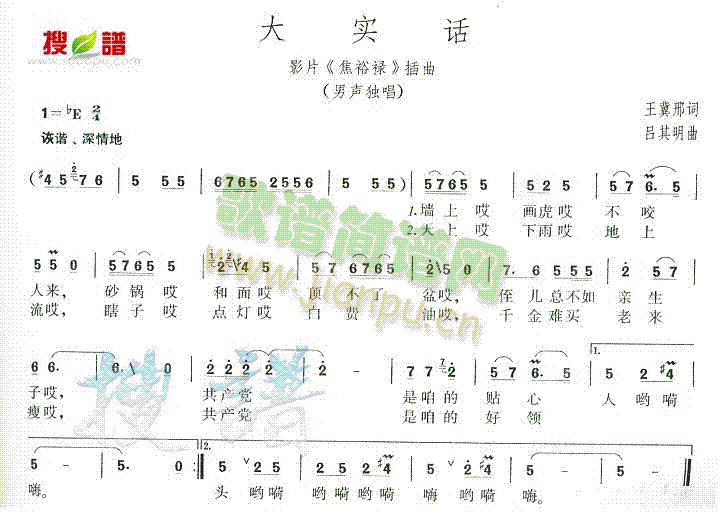 大 实 话
搜 谱
www.sooopu.com
影片《焦裕禄》插曲
（男声独唱）
1=♭E 2/4
王冀邢词
诙谐、深情地
吕其明曲
(♯4 5 2/1 7 6 | 5 5 5 | 6765 2556 | 5 5 5) | 5765 5 | 5 2 5 | 5 7 6. 5
1.墙上哎 画虎哎 不 咬
2.天上哎 下雨哎 地 上
5 5 0 | 5765 5 | 2 ♯4 5 | 5 765 | 2 0 | 7. 6 5 5 5 | 2 5 7
人来， 砂锅哎 和面哎 顶 不 了 盆哎， 侄 儿 总不如 亲 生
流哎， 瞎子哎 点灯哎 白 费 油哎， 千 金难买 老 来
6 6. | 6. 0 | 2 2 2 2 | 2 - | 7 7 2 | 5 7 6. | 1. 5 5 2 ♯4
子哎， 共产党 是咱的 贴 心 人 哟嗬
瘦哎， 共产党 是咱的 好 领
5 - | 5. | 5. 0 :| 2. 5 2 5 | 2 5 2 5 | 2 5 2 ♯4 | 5 - | 5 0
嗨。 头 哟嗬 哟嗬 哟嗬 嗨 哟嗬 嗨。
歌谱简谱网
www.jianpu.cn
搜 谱